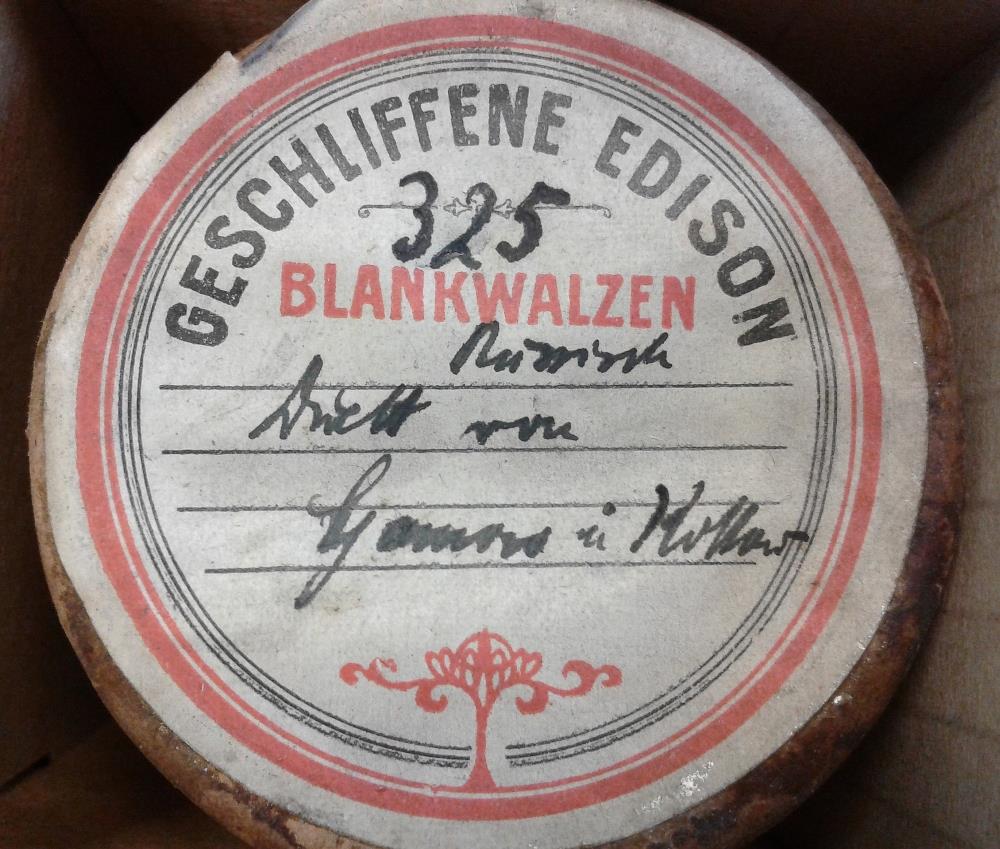 GESCHLIFFENE EDISON
325
BLANKWALZEN
Russisch
Duett von
u